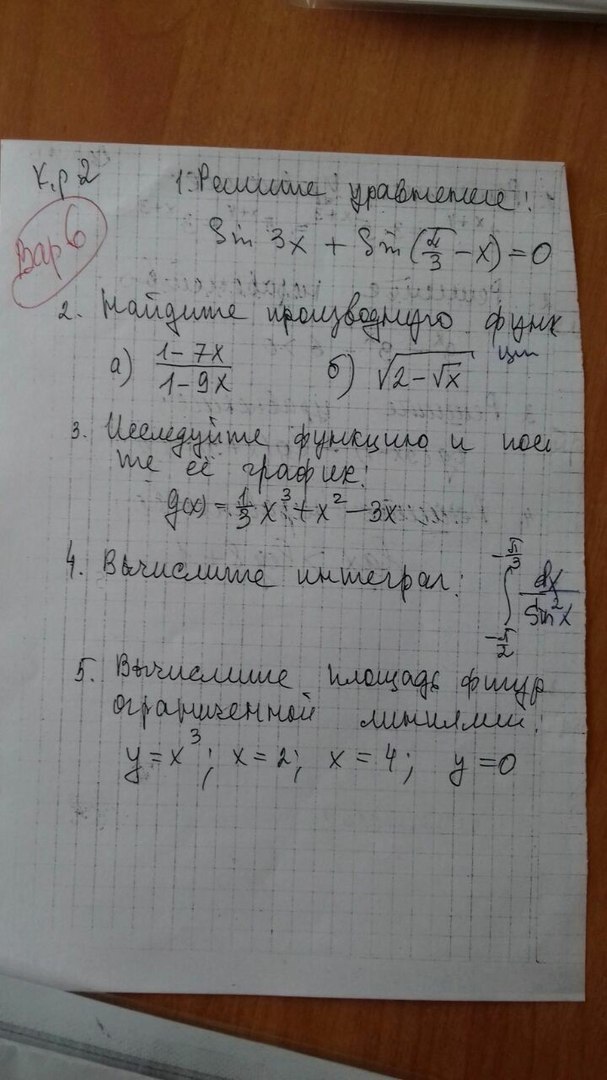 К.р 2
Вар 6
1. Решите уравнение:
Sin 3x + Sin (π/3 - x) = 0
2. Найдите производную функ
ции
а) (1-7x)/(1-9x) б) √(2-√x)
3. Исследуйте функцию и пос
те её график:
g(x) = 1/3 x³ + x² - 3x
4. Вычислите интеграл: ∫_{-π/2}^{-π/3} dx/Sin²x
5. Вычислите площадь фигур
ограниченной линиями:
y = x³; x = 2; x = 4; y = 0